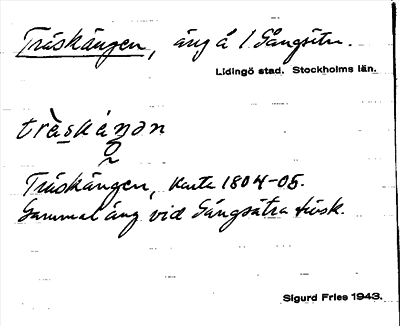 Träskängen, äng å 1 Gångsätra.
Lidingö stad. Stockholms län.
Träskängen, Karta 1804-05.
Gammal äng vid Gångsätra träsk.
Sigurd Fries 1943.